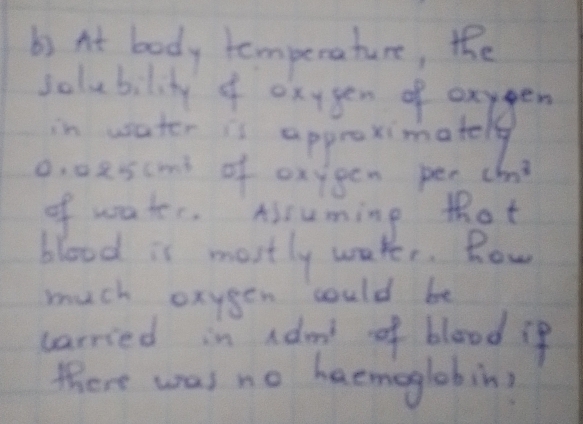 b) At body temperature, the
solubility of oxygen of oxygen
in water is approximately
0.025cm³ of oxygen per cm³
of water. Assuming that
blood is mostly water. how
much oxygen could be
carried in 1dm³ of blood if
there was no haemoglobin?